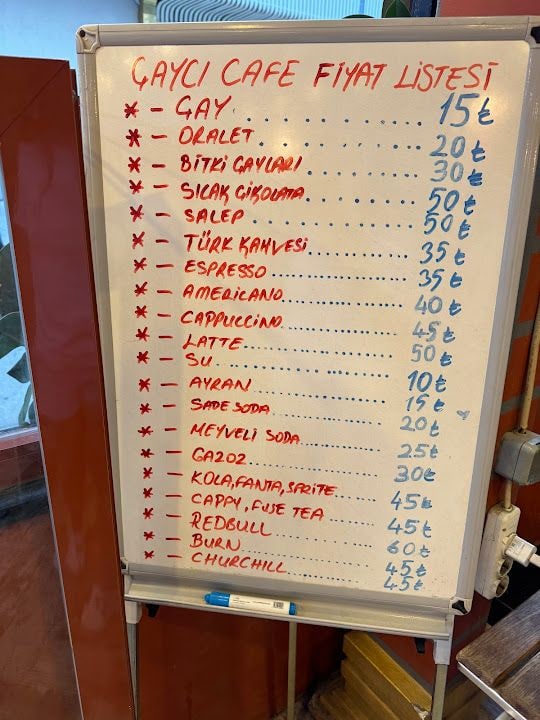 ÇAYCI CAFE FİYAT LİSTESİ
* - ÇAY ........ 15₺
* - ORALET ........ 20₺
* - BİTKİ ÇAYLARI ........ 30₺
* - SICAK ÇİKOLATA ........ 50₺
* - SALEP ........ 50₺
* - TÜRK KAHVESİ ........ 35₺
* - ESPRESSO ........ 35₺
* - AMERICANO ........ 40₺
* - CAPPUCCINO ........ 45₺
* - LATTE ........ 50₺
* - SU ........ 10₺
* - AYRAN ........ 15₺
* - SADE SODA ........ 20₺
* - MEYVELİ SODA ........ 25₺
* - GAZOZ ........ 30₺
* - KOLA, FANTA, SPRİTE ........ 45₺
* - CAPPY, FUSE TEA ........ 45₺
* - REDBULL ........ 60₺
* - BURN ........ 45₺
* - CHURCHILL ........ 45₺